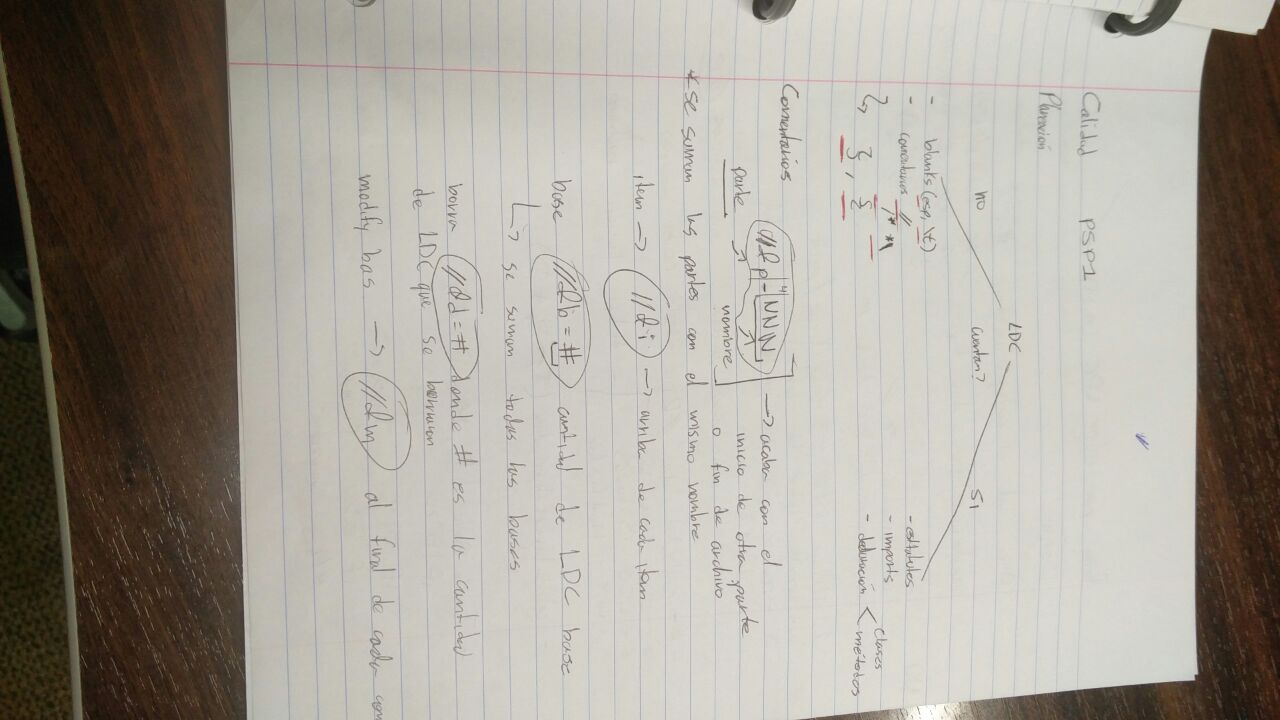 Calidad PSP1
Planeación
LDC
no cuentan? Si
- blanks (esp, \t)
- comentarios // /* *\
↳ } , {
- estatutos
- imports
- declaración < clases
métodos
Comentarios //&p-NNN → acaba con el
inicio de otra parte
o fin de archivo
parte nombre
* se suman las partes con el mismo nombre
item → //&i → arriba de cada item
base //&b=# cantidad de LDC base
↳ se suman todas las bases
borra //&d=# donde # es la cantidad
de LDC que se borraron
modify bas → //&m al final de cada